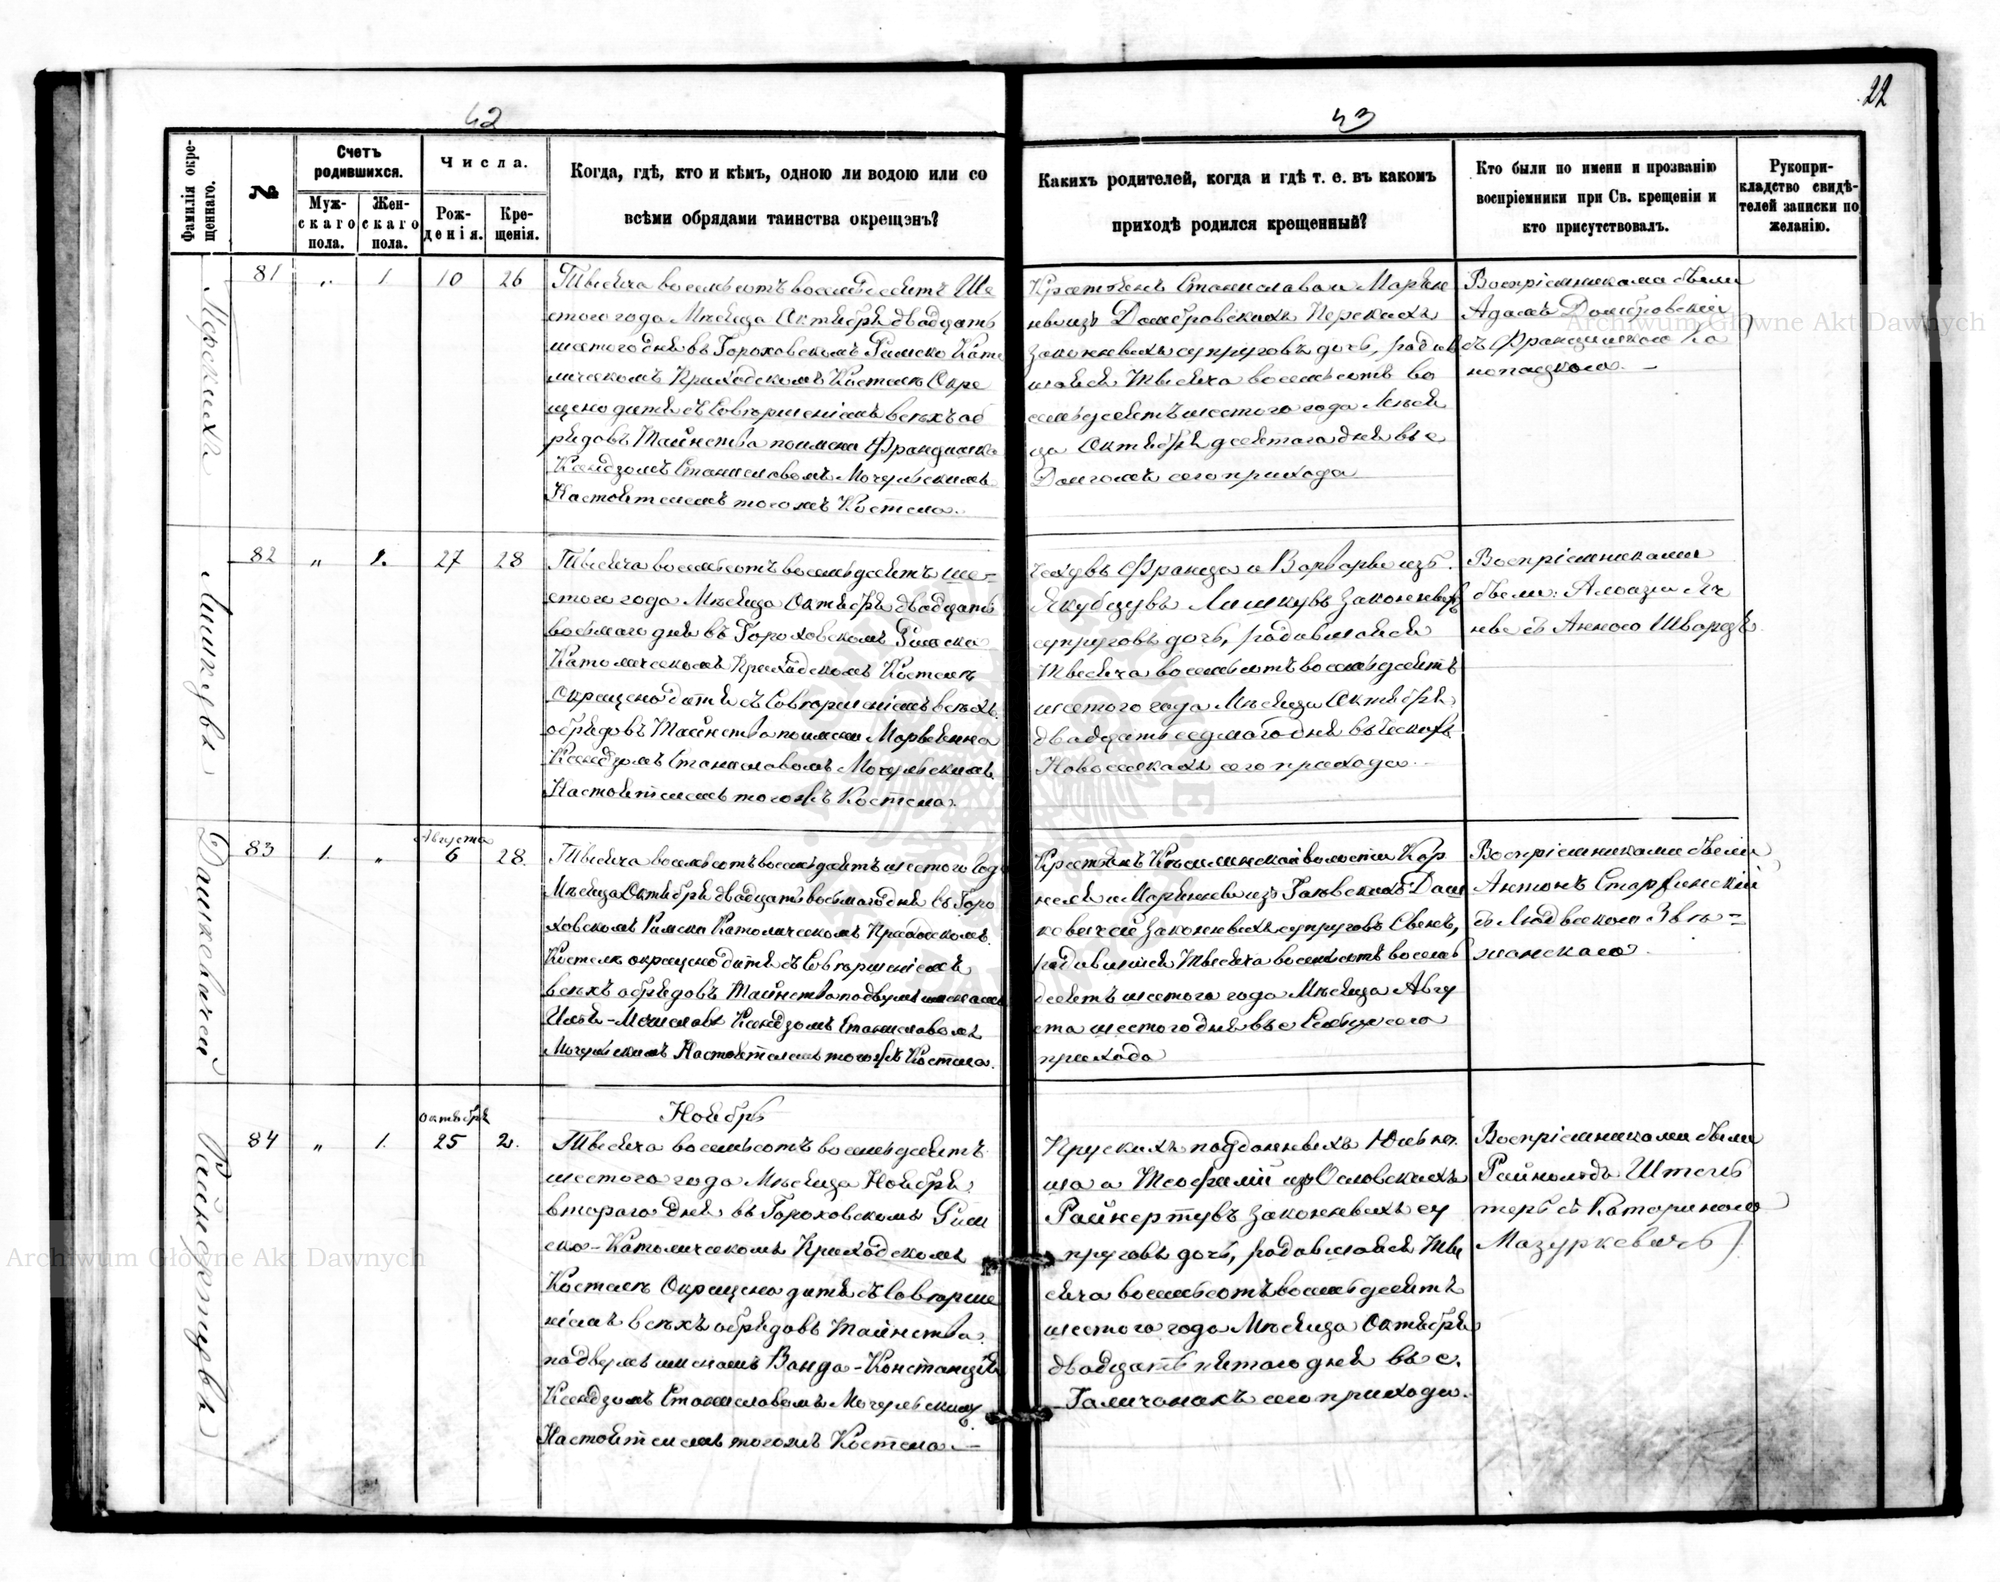 22
42
43
Фамилія окре-
щеннаго.
№
Счетъ
родившихся.
Муж-
скаго
пола.
Жен-
скаго
пола.
Числа.
Рож-
денія.
Кре-
щенія.
Когда, гдѣ, кто и кѣмъ, одною ли водою или со
всѣми обрядами таинства окрещэнъ?
Какихъ родителей, когда и гдѣ т. е. въ какомъ
приходѣ родился крещенный?
Кто были по имени и прозванію
воспріемники при Св. крещеніи и
кто присутствовалъ.
Рукопри-
кладство свидѣ-
телей записки по
желанію.
81 „ 1 10 26
Тысяча восемьсотъ восемьдесятъ ше
стого года Мѣсяца Октября двадцать
шестого дня въ Гороховскомъ Римско Като
лическомъ Приходскомъ Костелѣ Окре
щено дитя съ Совершеніемъ всѣхъ об
рядовъ Таинства по имени Францишка
Ксендзомъ Станиславомъ Мочульскимъ
Настоятелемъ того жъ Костела.
Крестьянъ Станислава и Маріян
ны изъ Домбровскихъ
законныхъ супруговъ дочь, родив
шаяся тысяча восемьсотъ во
семьдесятъ шестого года Мѣся
ца Октября десятого дня въ с
сего прихода
Воспріемниками были
Адамъ Домбровскій
съ Францишкою Ко
нопацкою. —
Лишкувъ
82 „ 1. 27 28
Тысяча восемьсотъ восемьдесятъ ше-
стого года Мѣсяца Октября двадцать
восьмого дня въ Гороховскомъ Римско
Католическомъ Приходскомъ Костелѣ
Окрещено дитя съ Совершеніемъ всѣхъ
обрядовъ Таинства по имени Марьянна
Ксендзомъ Станиславомъ Мочульскимъ
Настоятелемъ того жъ Костела.
Чеховъ Франца и Варвары изъ
Якубцувъ Лишкувъ законныхъ
супруговъ дочь, родившаяся
тысяча восемьсотъ восемьдесятъ
шестого года Мѣсяца Октября
двадцать седьмого дня въ Ческихъ
Новоселкахъ сего прихода.
Воспріемниками
были: Алоизи
съ Анною Шварцъ
83 1. „ Августа 6 28.
Тысяча восемьсотъ восемьдесятъ шестого года
Мѣсяца Октября двадцать восьмого дня въ Горо
ховскомъ Римско Католическомъ Приходскомъ
Костелѣ окрещено дитя съ Совершеніемъ
всѣхъ обрядовъ Таинства по двумъ именамъ
Ксендзомъ Станиславомъ
Мочульскимъ Настоятелемъ того жъ Костела.
Крестьянъ волости Кор
нелія и Маріянны изъ Даш
кевичей законныхъ супруговъ Сынъ,
родившійся тысяча восемьсотъ восемь
десятъ шестого года Мѣсяца Авгу
ста шестого дня въ с сего
прихода
Воспріемниками были
Антонъ
съ Людвикою
Октября
84 „ 1. 25 2.
Ноябрь
Тысяча восемьсотъ восемьдесятъ
шестого года Мѣсяца Ноября
второго дня въ Гороховскомъ Рим
ско-Католическомъ Приходскомъ
Костелѣ Окрещено дитя съ Соверше
ніемъ всѣхъ обрядовъ Таинства
по двумъ именамъ Ванда-Констанція
Ксендзомъ Станиславомъ Мочульскимъ
Настоятелемъ того жъ Костела. —
Прускихъ подданныхъ
и Теофиліи изъ Ословскихъ
Райнертувъ законныхъ су
пруговъ дочь, родившаяся ты
сяча восемьсотъ восемьдесятъ
шестого года Мѣсяца Октября
двадцать пятого дня въ с.
Галичанахъ сего прихода.
Воспріемниками были
Райнольдъ
съ Катариною
Мазуркевичъ
Archiwum Główne Akt Dawnych
Archiwum Główne Akt Dawnych